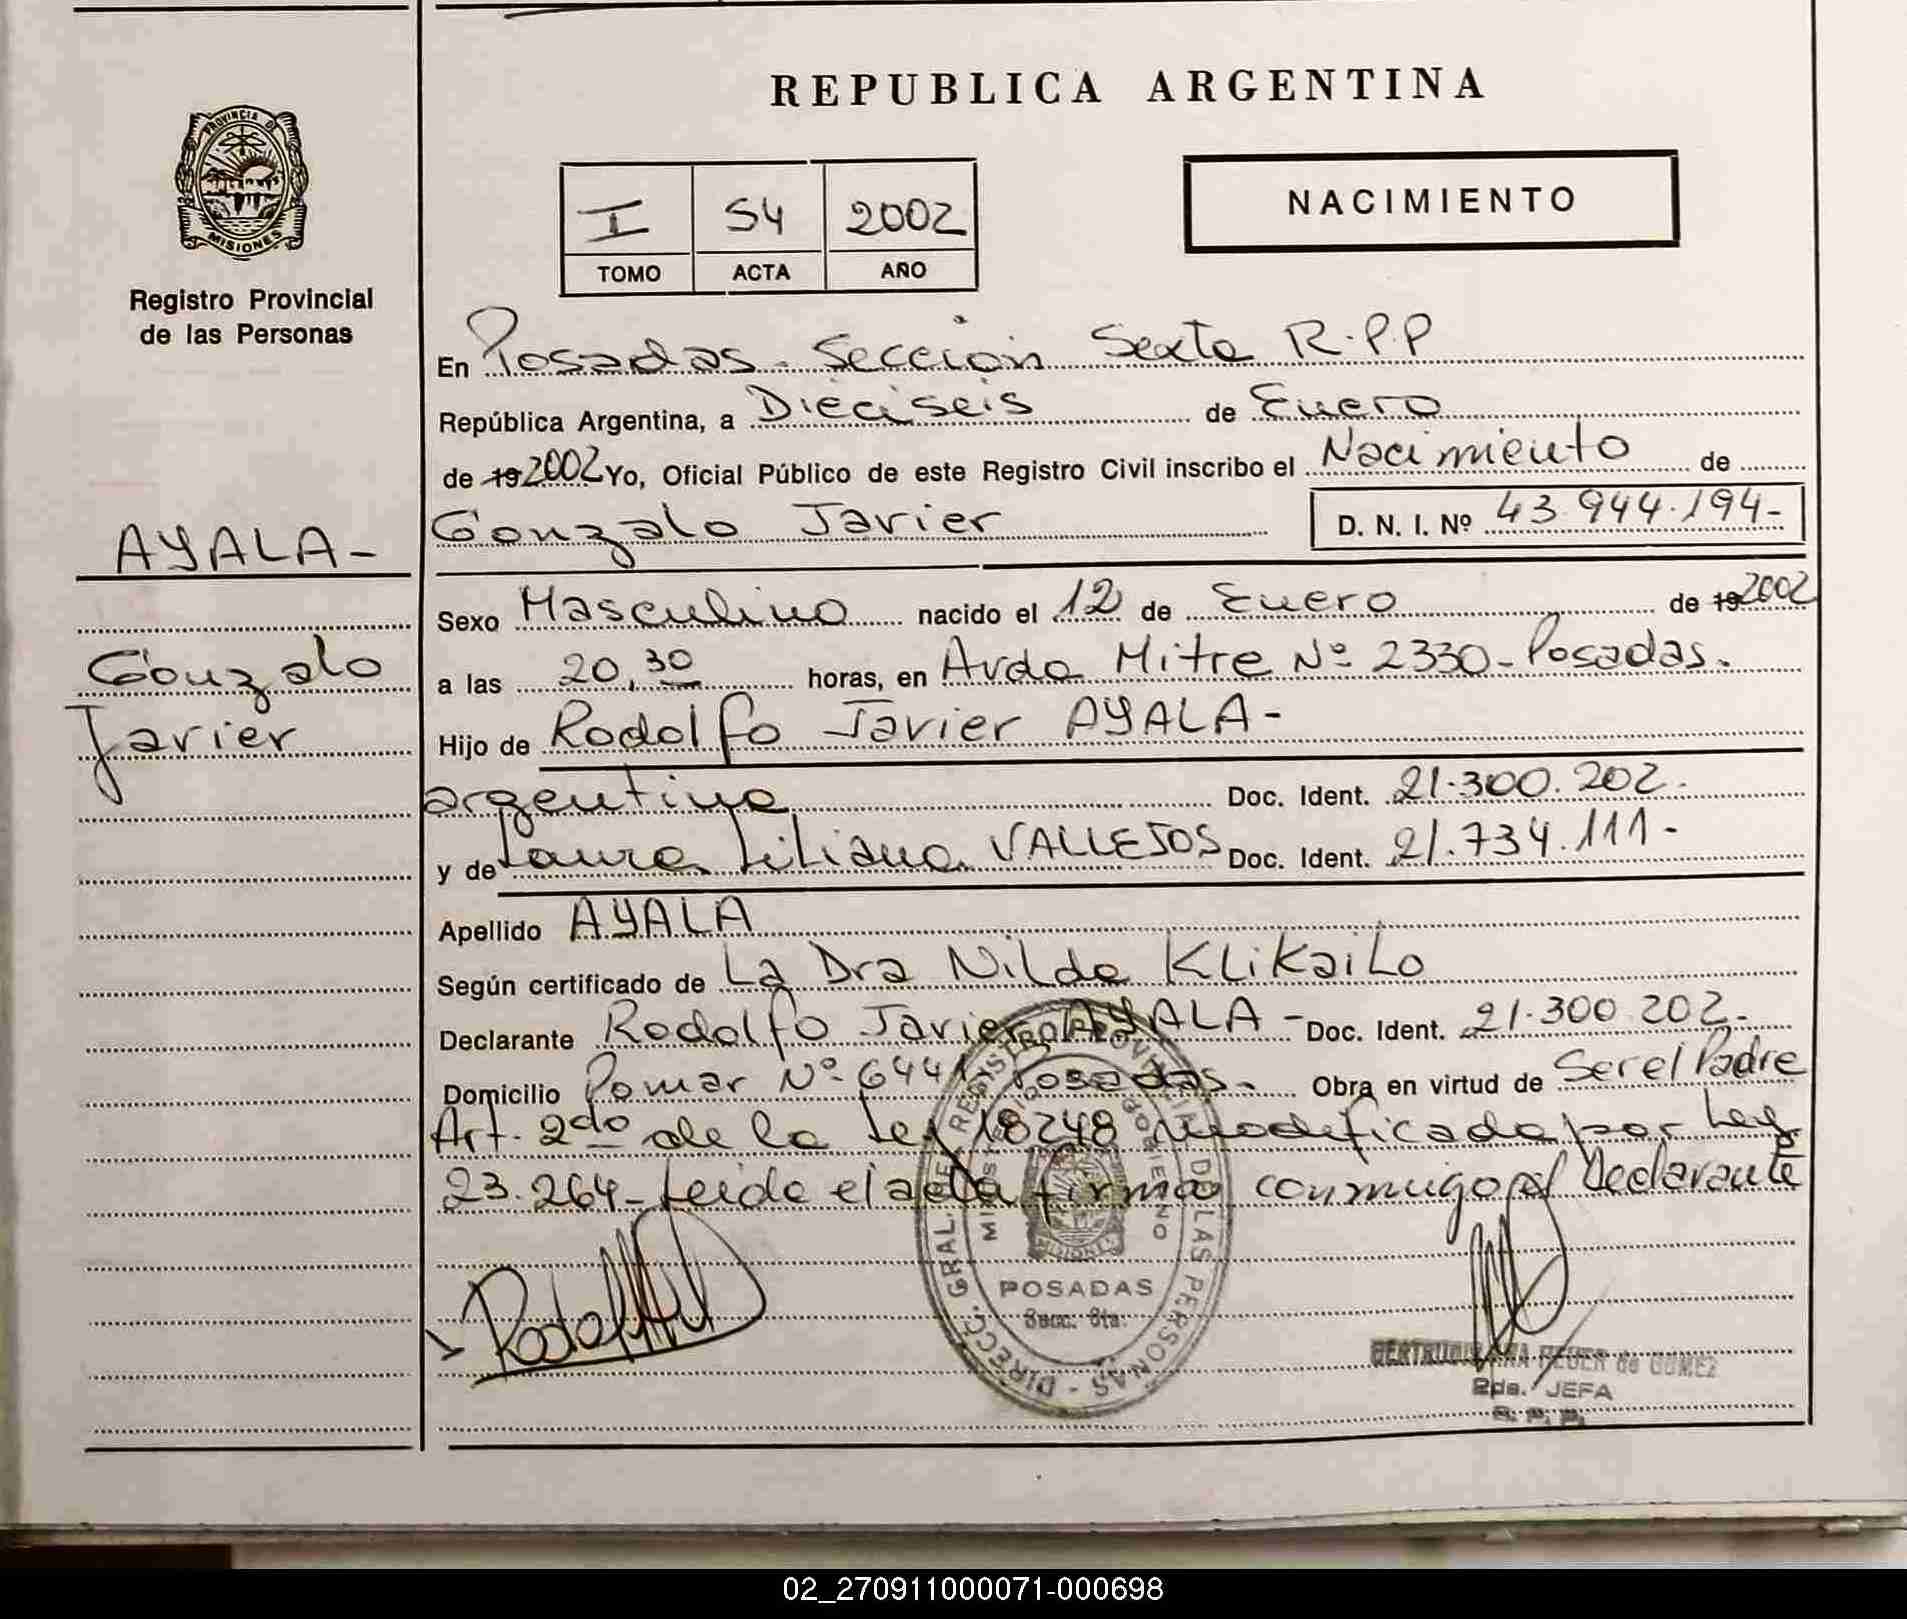 REPUBLICA ARGENTINA
PROVINCIA DE
MISIONES
Registro Provincial
de las Personas
I 54 2002
TOMO ACTA AÑO
NACIMIENTO
En Posadas - Sección Sexta R.P.P
República Argentina, a Dieciseis de Enero
de 19 2002 Yo, Oficial Público de este Registro Civil inscribo el Nacimiento de
Gonzalo Javier D. N. I. Nº 43.944.194-
AYALA-
Gonzalo
Javier
Sexo Masculino nacido el 12 de Enero de 19 2002
a las 20,30 horas, en Avda Mitre Nº 2330 - Posadas.
Hijo de Rodolfo Javier AYALA-
argentino Doc. Ident. 21.300.202.
y de Laura Liliana VALLEJOS Doc. Ident. 21.734.111-
Apellido AYALA
Según certificado de La Dra Nilda KLiKaiLo
Declarante Rodolfo Javier AYALA - Doc. Ident. 21.300 202.
Domicilio Pomar Nº 644 Posadas. Obra en virtud de Ser el Padre
Art. 2do de la Ley 18248 modificada por Ley
23.264- Leida el acta firma conmigo el Declarante
DIRECC. GRAL. DE REGISTRO PROVINCIAL DE LAS PERSONAS
MISIONES
POSADAS
Secc. 6ta.
Rodolf
de GOMEZ
2da. JEFA
R. P. P.
02_270911000071-000698